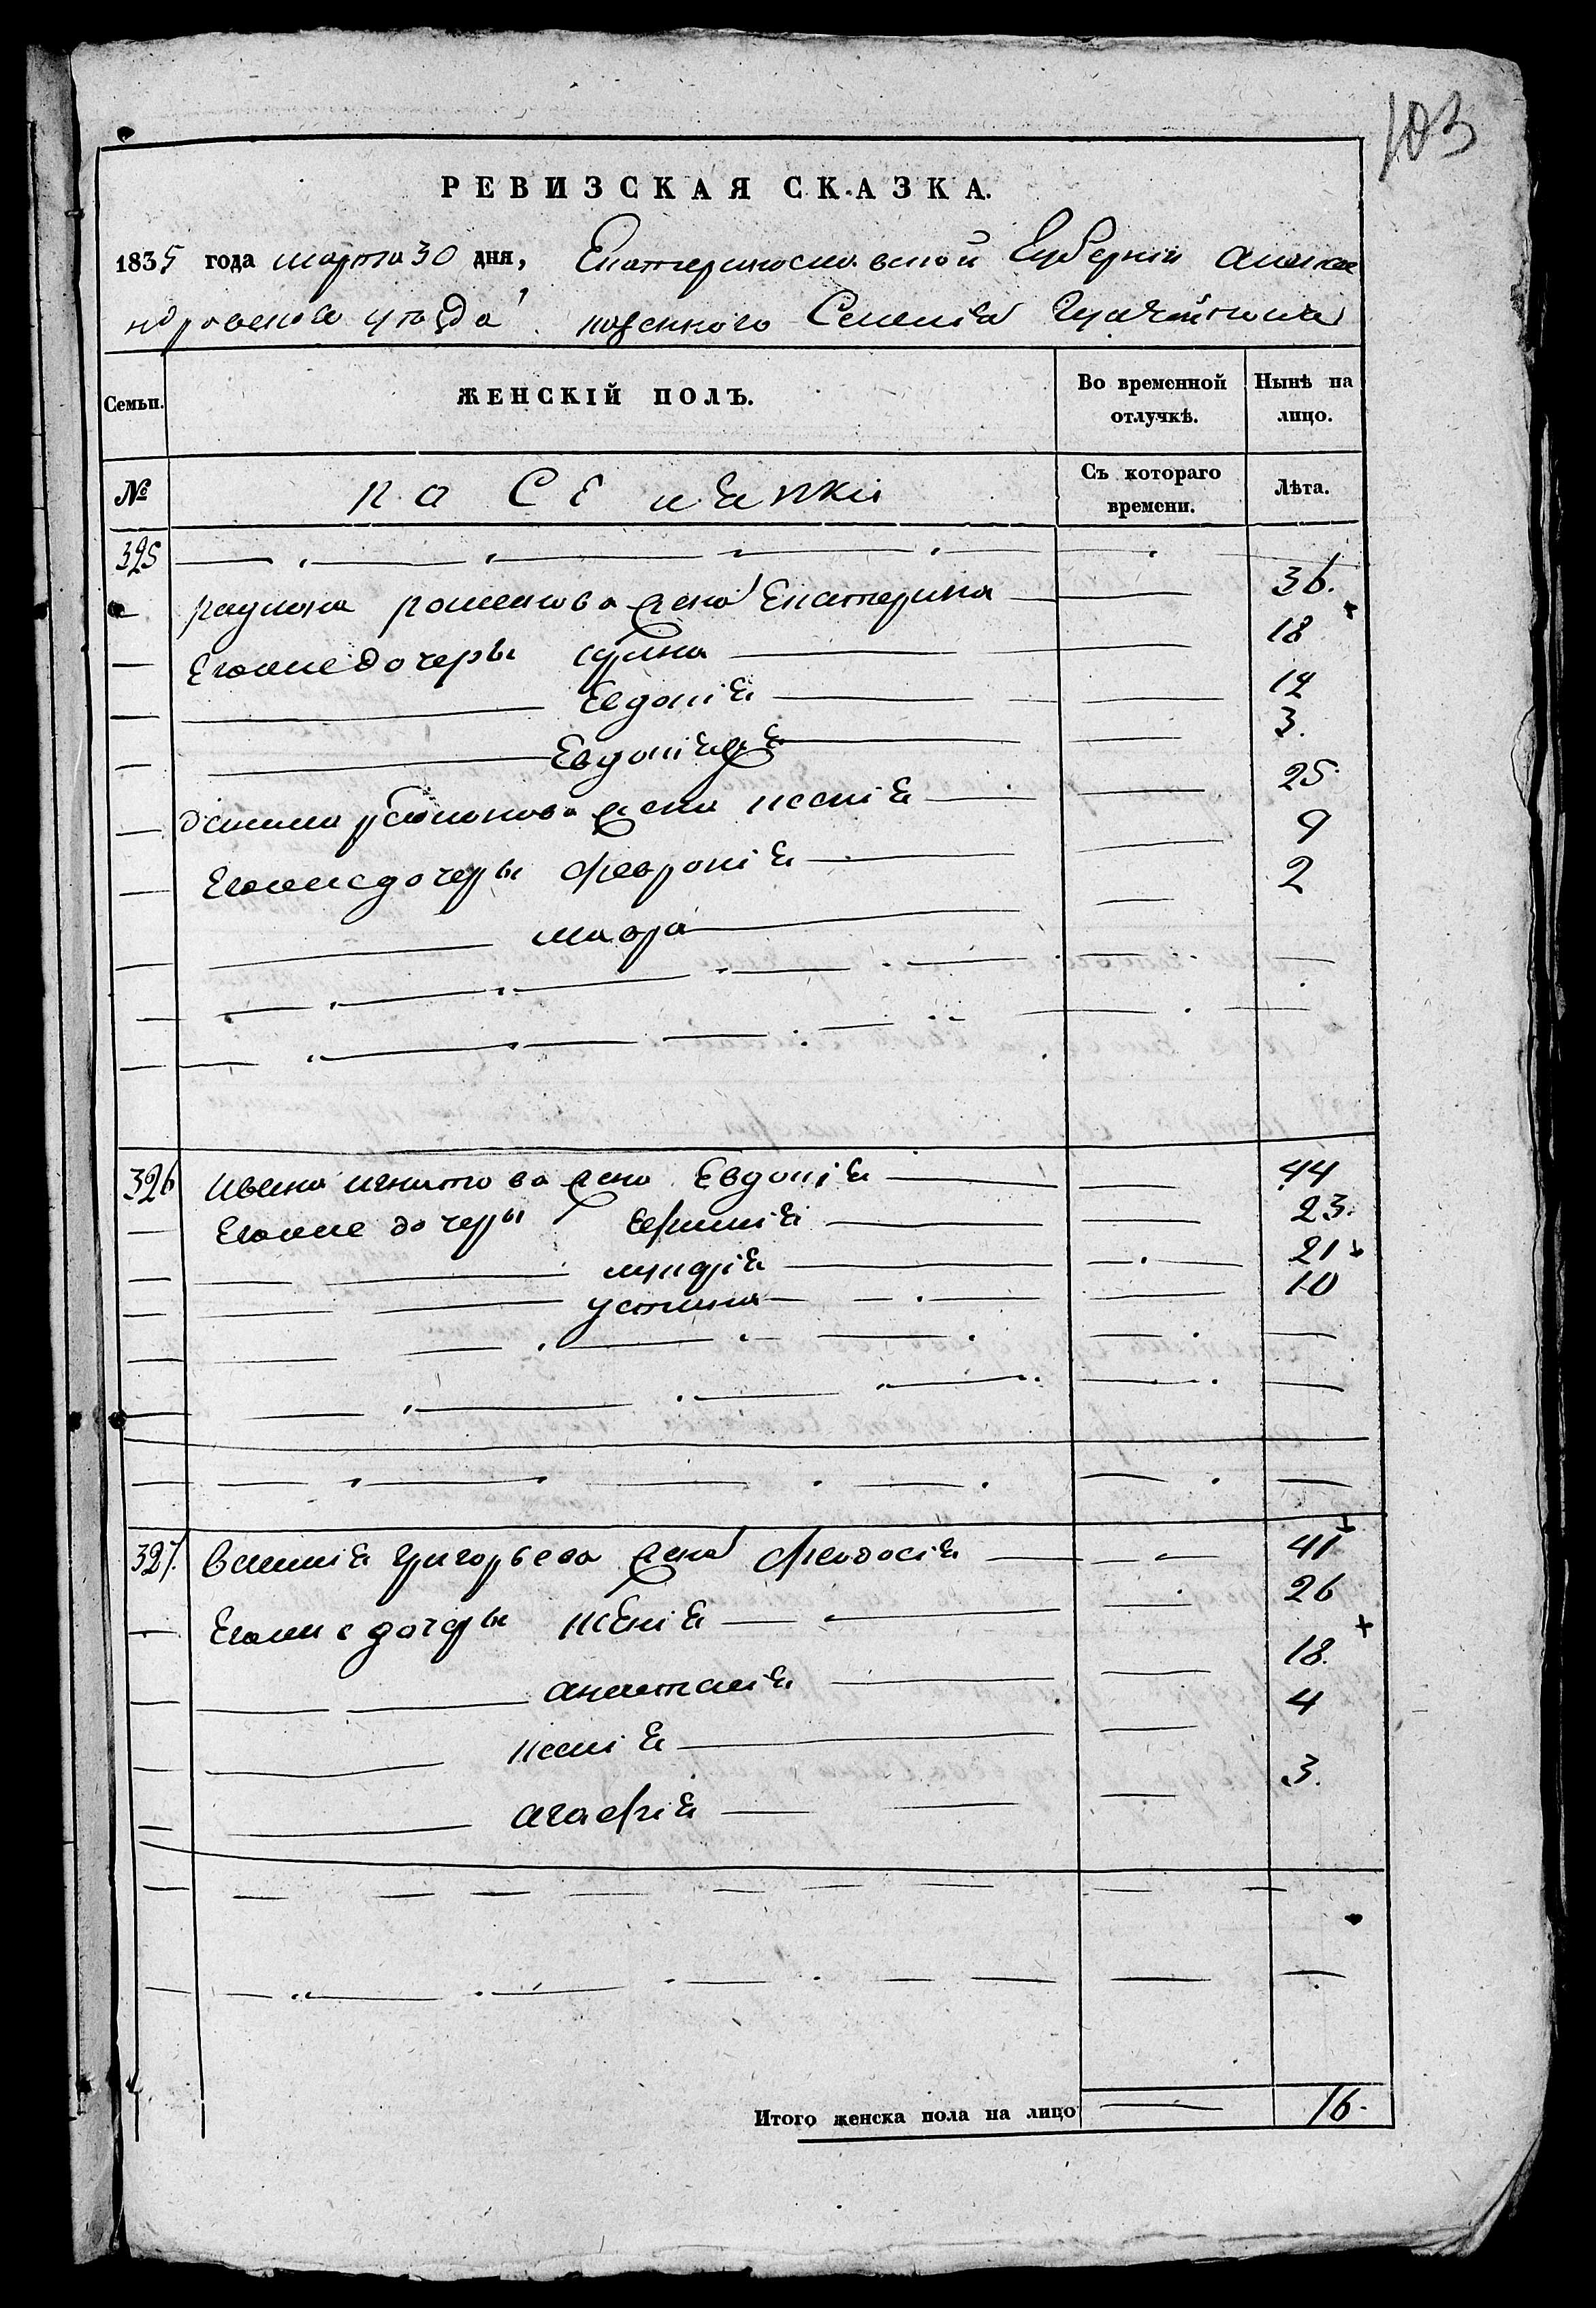 103
РЕВИЗСКАЯ СКАЗКА.
1835 года марта 30 дня, Екатеринославской Губерніи алекса
ндровскаго уѣзда казенного Селенія
Семьи. ЖЕНСКІЙ ПОЛЪ. Во временной отлучкѣ. Нынѣ на лицо.
№ поселянки Съ котораго времени. Лѣта.
325
романова жена Екатерина 36.
Егоже дочеры 18
Евдокія 12
Евдокія 3.
жена ксенія 25.
Егоже дочеры февронія 9
мавра 2
326 ивана игнатова жена Евдокія 44
Егоже дочеры Ефимія 23.
21
устина 10
327. василія григорьева жена феодосія 41
Егоже дочеры 26
анастасія 18.
ксенія 4
агафія 3.
Итого женска пола на лицо 16.